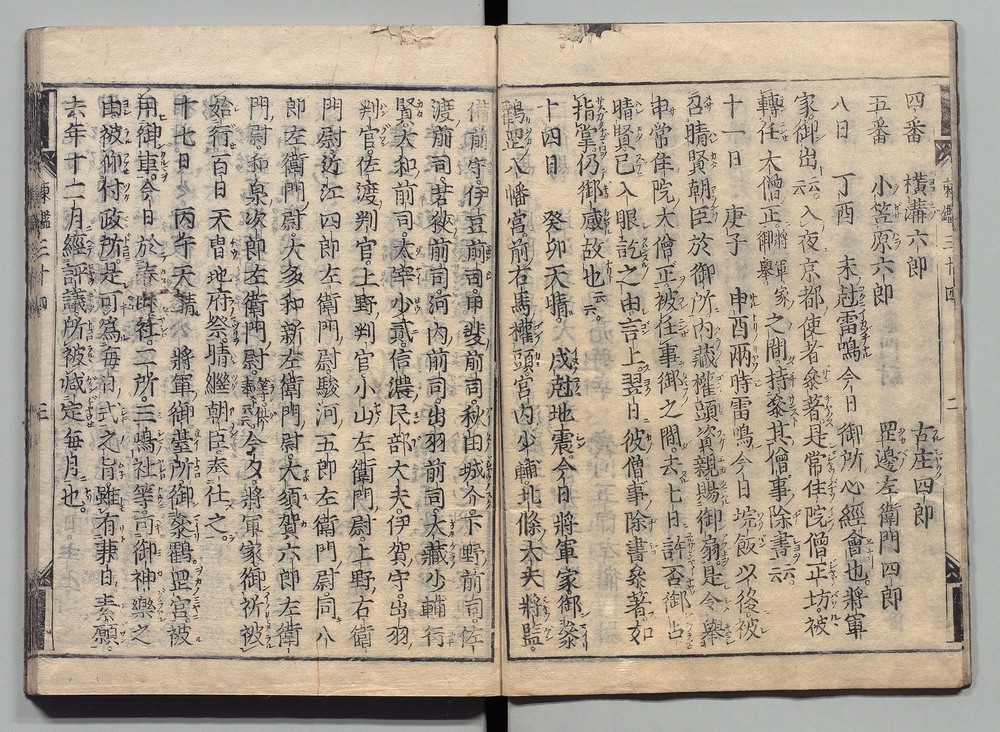 四番 横溝六郎 古庄四郎
五番 小笠原六郎 置邊左衛門四郎
八日 丁酉 未尅雷鳴今日御所心經會也將軍
家御出云云入夜京都使者參著是常住院僧正坊被
轉任大僧正將軍家御擧之間持參其僧事除書云云
十一日 庚子 申酉兩時雷鳴今日垸飯以後被
召晴賢朝臣於御所内藏權頭資親賜御扇是令擧
申常住院大僧正被任事御之間去七日許否御占
晴賢已入眼訖之由言上翌日彼僧事除書參著如
指掌仍御感故也云云
十四日 癸卯天晴 戌尅地震今日將軍家御參
鶴岡八幡宮前右馬權頭宮内少輔北條大夫將監
備前守伊豆前司甲斐前司秋田城介下野前司佐
渡前司若狹前司河内前司出羽前司大藏少輔行
賢大和前司太宰少貳信濃民部大夫伊賀守出羽
判官佐渡判官上野判官小山左衛門尉上野右衛
門尉近江四郎左衛門尉駿河五郎左衛門尉同八
郎左衛門尉大多和新左衛門尉大須賀六郎左衛
門尉和泉次郎左衛門尉 今夕將軍家御祈被
始行百日天曹地府祭晴繼朝臣奉仕之
十七日 丙午天晴 將軍御臺所御參鶴岡宮被
用御車今日於 社二所三嶋社等可御神樂之
由被仰付政所是可爲毎日式之旨雖有兼日素願
去年十二月經評議所被减定毎月也
東鑑三十四 二
東鑑三十四 三